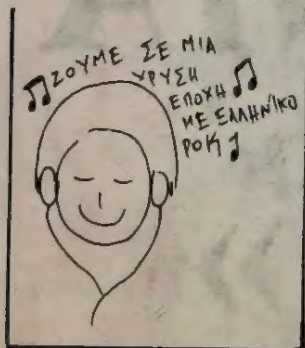 ΖΟΥΜΕ ΣΕ ΜΙΑ
ΧΡΥΣΗ
ΕΠΟΧΗ
ΜΕ ΕΛΛΗΝΙΚΟ
ΡΟΚ